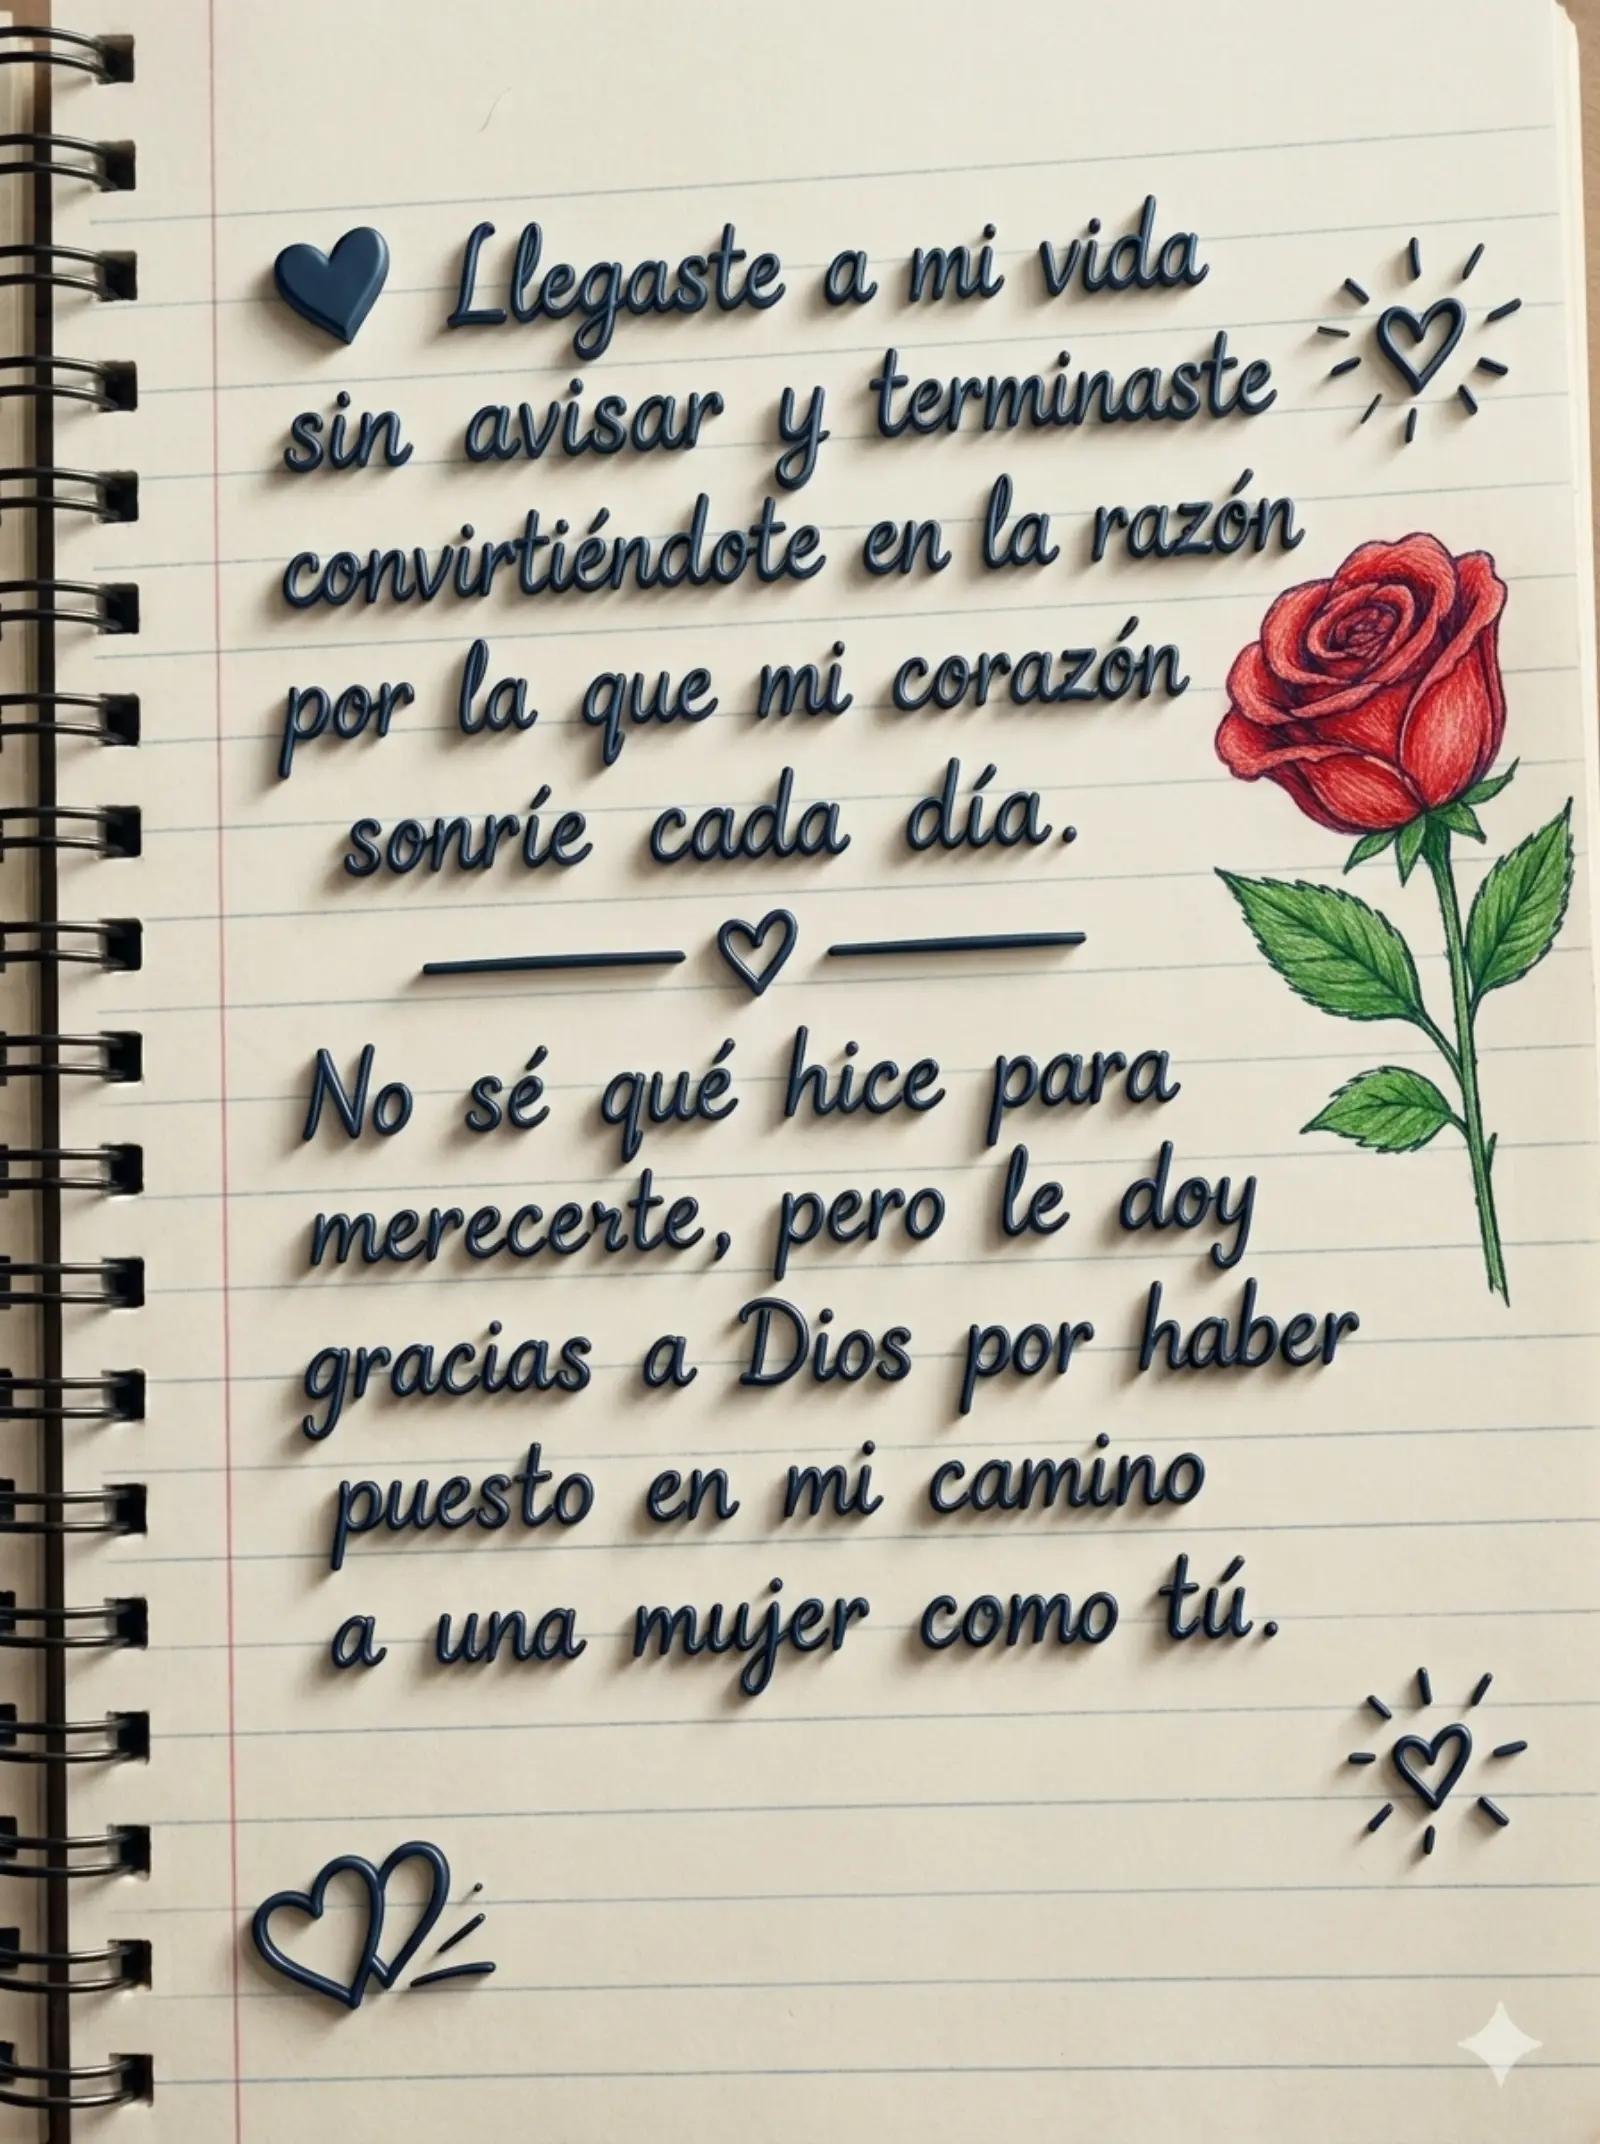 Llegaste a mi vida
sin avisar y terminaste
convirtiéndote en la razón
por la que mi corazón
sonríe cada día.
No sé qué hice para
merecerte, pero le doy
gracias a Dios por haber
puesto en mi camino
a una mujer como tú.